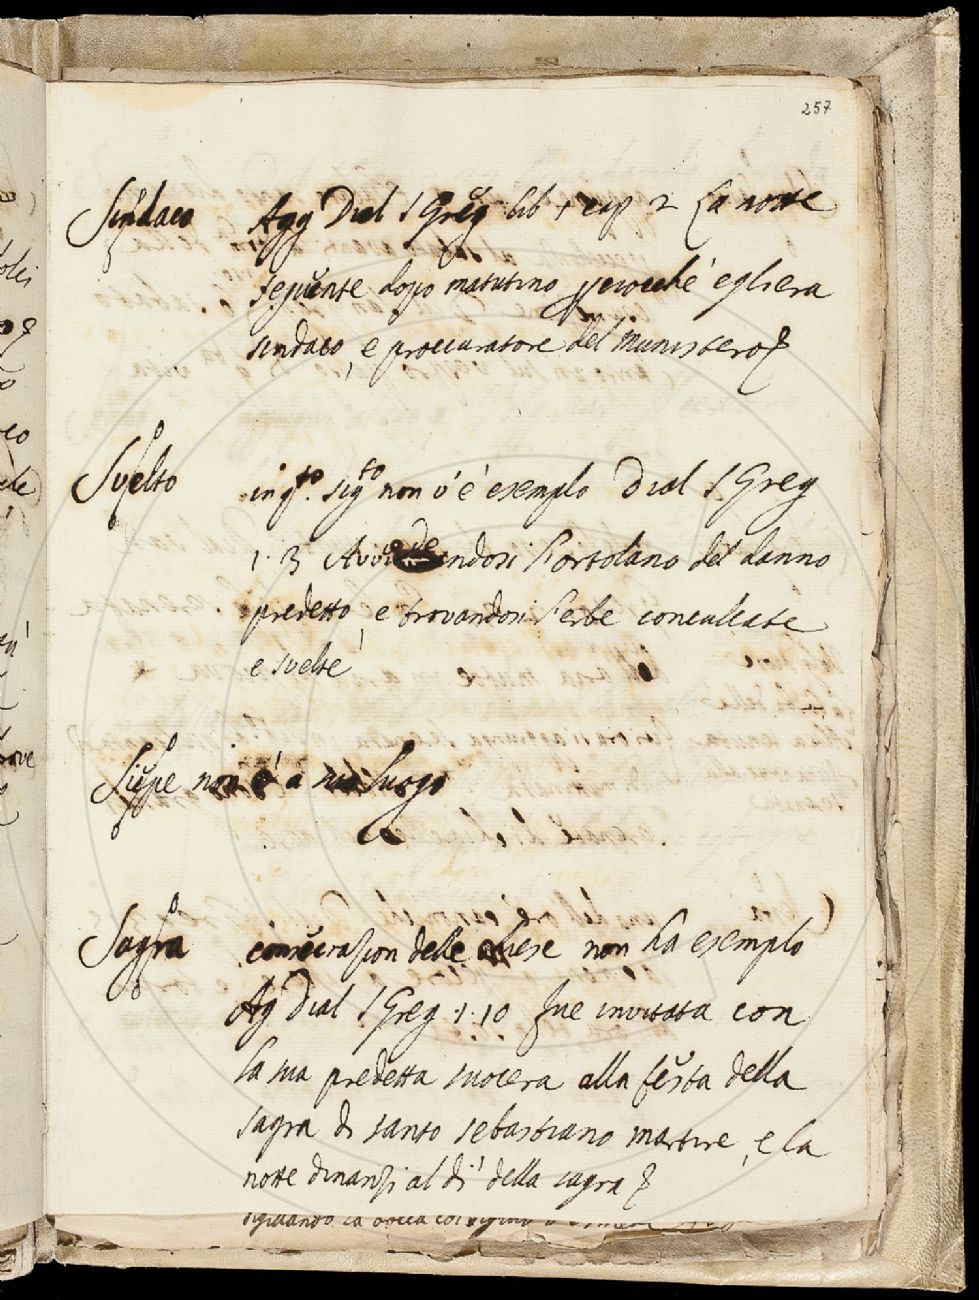 257
Sindaco Agg Dial S Greg lib 1 cap 2 La notte
seguente dopo matutino perocché egli era
sindaco, e proccuratore del munistero
Svelto in qto. sigto non v'è esempio Dial S. Greg
1. 3 Avvedendosi l'ortolano del danno
predetto, e trovandosi l'erbe conculcate
e svelte
Siepe non è a suo luogo
Sagra consecrazion delle chiese non ha esempio
Ag Dial S Greg. 1. 10 fue invitata con
la sua predetta suocera alla festa della
sagra di santo sebastiano martire, e la
notte dinanzi al dì della sagra